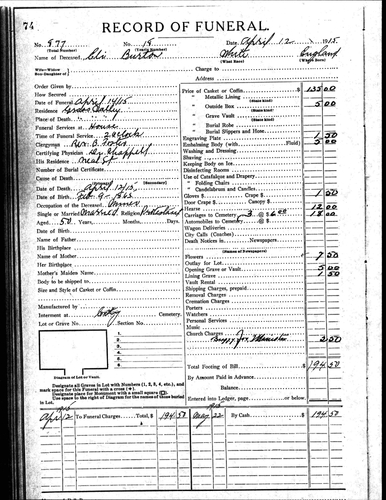 74
RECORD OF FUNERAL.
No. 577 No. 18 Date April 12 1915
(Total Number) (Yearly Number)
Name of Deceased Eli Burton White England
(What Race) (Where Born)
Charge to
Address
Order Given by
How Secured
Date of Funeral April 14/15
Place of Death
Funeral Services at House
Time of Funeral Service 2 o'clock
Clergyman Rev. B.
Certifying Physician Dr. Chappell
His Residence Neal St
Number of Burial Certificate
Cause of Death
Date of Death April 12/15
Date of Birth Feb. 9 - 1865
Occupation of the Deceased
Single or Married Married Religion Protestant
Aged 50 Years, Months, Days.
Date of Birth
Name of Father
His Birthplace
Name of Mother
Her Birthplace
Mother's Maiden Name
Body to be shipped to
Size and Style of Casket or Coffin
Manufactured by
Interment at City Cemetery.
Lot or Grave No. Section No.
1
2
3
4
5
6
Diagram of Lot or Vault.
Designate all Graves in Lot with Numbers (1, 2, 3, 4, etc.), and mark this Funeral with a cross (+).
Designate place for Monument with a small square
Use space to right of Diagram for the names of those buried in Lot.
Price of Casket or Coffin $ 135 00
" Metallic Lining
" Outside Box 5 00
" Grave Vault
" Burial Robe
" Burial Slippers and Hose
Engraving Plate 1 50
Embalming Body (with Fluid) 5 00
Washing and Dressing
Shaving
Keeping Body on Ice
Disinfecting Rooms
Use of Catafalque and Drapery
" Folding Chairs
" Candelabrum and Candles
Gloves $ Crape $ 1 00
Door Crape $ Canopy $
Hearse 12 00
Carriages to Cemetery 3 @ $ 6 00 18 00
Automobiles to Cemetery @ $
Wagon Deliveries
City Calls (Coaches)
Death Notices in Newspapers
(Names of Newspapers)
Flowers 7 50
Outlay for Lot
Opening Grave or Vault 5 00
Lining Grave 1 50
Vault Rental
Shipping Charges, prepaid
Removal Charges
Cremation Charges
Porters
Watchers
Personal Services
Music
Church Charges
Buggy for Minister 2 50
Total Footing of Bill $ 194 50
By Amount Paid in Advance
Balance
Entered into Ledger, page or below.
1915
April 12 To Funeral Charges Total, $ 194.50 May 22 By Cash $ 194.50